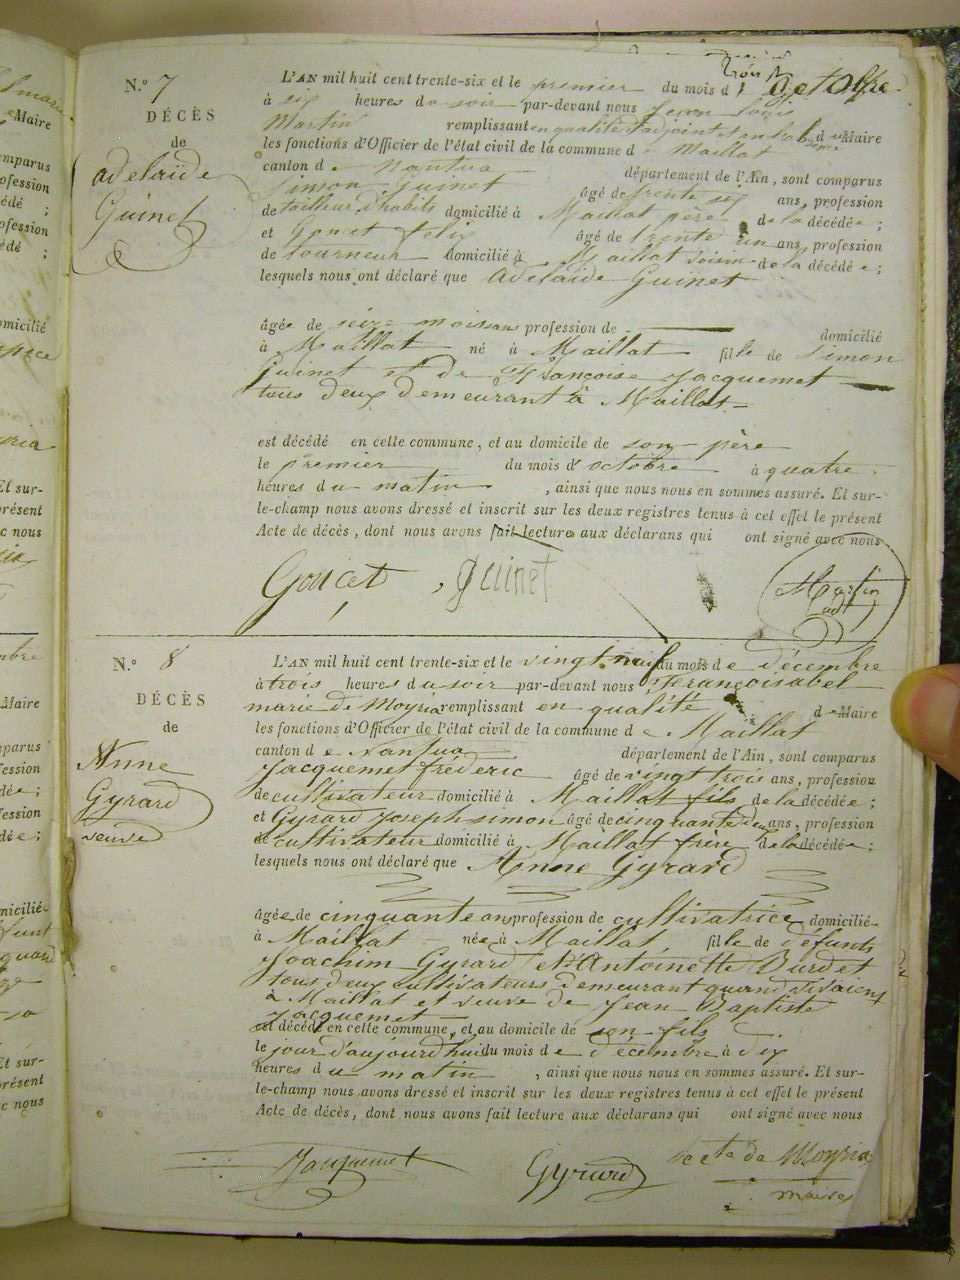 N.º 7
DÉCÈS
de
adelaïde
Guinet
L'AN mil huit cent trente-six et le premier du mois d'octobre
à six heures du soir par-devant nous Jean Louis
Martin remplissant en qualité d'adjoint Maire
les fonctions d'Officier de l'état civil de la commune de Maillat
canton de Nantua département de l'Ain, sont comparus
Simon Guinet âgé de trente six ans, profession
de tailleur d'habits domicilié à Maillat père de la décédée ;
et Goncet felix âgé de trente un ans, profession
de tourneur domicilié à Maillat voisin de la décédée ;
lesquels nous ont déclaré que adelaïde Guinet
âgée de seize mois ans profession de domicilié
à Maillat né à Maillat fille de Simon
Guinet et de françoise Jacquemet
tous deux demeurant à Maillat
est décédé en cette commune, et au domicile de son père
le premier du mois d'octobre à quatre
heures du matin , ainsi que nous nous en sommes assuré. Et sur-
le-champ nous avons dressé et inscrit sur les deux registres tenus à cet effet le présent
Acte de décès, dont nous avons fait lecture aux déclarans qui ont signé avec nous
Goncet Guinet Martin
adj
N.º 8
DÉCÈS
de
Anne
Gyrard
veuve
L'AN mil huit cent trente-six et le vingt neuf du mois de décembre
à trois heures du soir par-devant nous
marie de Moyria remplissant en qualité de Maire
les fonctions d'Officier de l'état civil de la commune de Maillat
canton de Nantua département de l'Ain, sont comparus
Jacquemet fréderic âgé de vingt trois ans, profession
de cultivateur domicilié à Maillat fils de la décédée ;
et Gyrard Joseph simon âgé de cinquante deux ans, profession
de cultivateur domicilié à Maillat frère de la décédée ;
lesquels nous ont déclaré que Anne Gyrard
âgée de cinquante ans profession de cultivatrice domicilié
à Maillat née à Maillat fille de défunts
Joachim Gyrard et d'Antoinette Burdet
tous deux cultivateurs demeurant quand vivaient
à Maillat et veuve de Jean Baptiste
Jacquemet
est décédée en cette commune, et au domicile de son fils
le jour d'aujourd'hui du mois de décembre à dix
heures du matin , ainsi que nous nous en sommes assuré. Et sur-
le-champ nous avons dressé et inscrit sur les deux registres tenus à cet effet le présent
Acte de décès, dont nous avons fait lecture aux déclarans qui ont signé avec nous
Jacquemet Gyrard de Moyria
maire